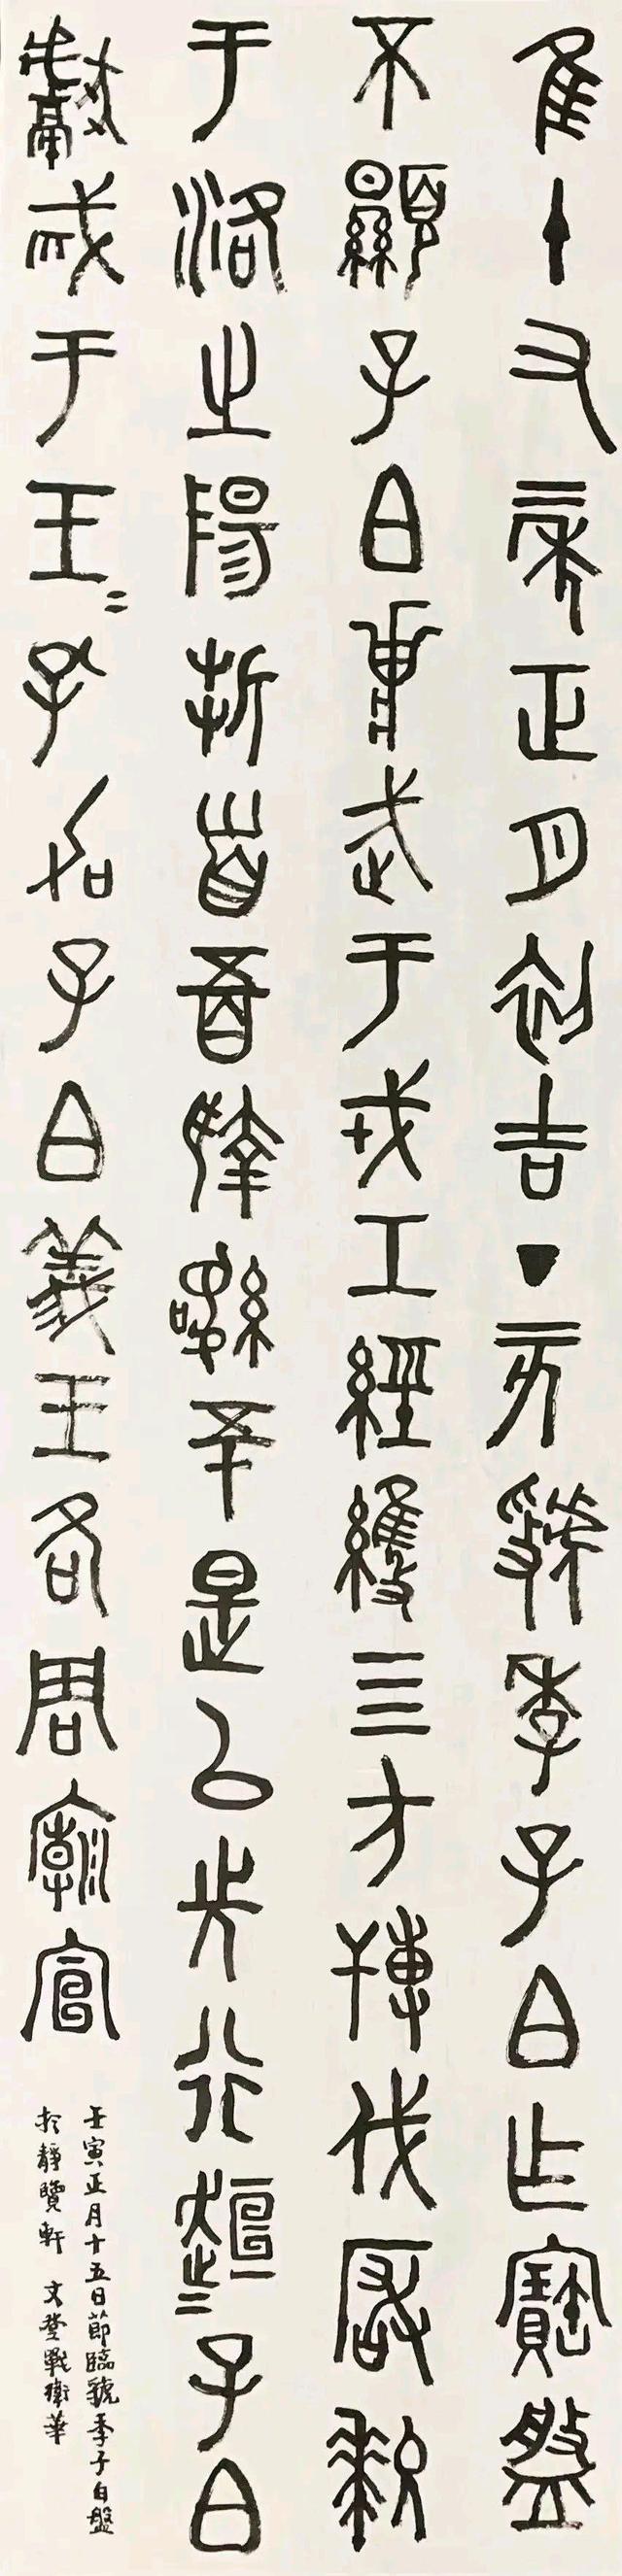 隹十又二年正月初吉丁亥虢季子白乍寶盤
不顯子白壯武于戎工經維四方搏伐玁狁
于洛之陽折首五百執訊五十是以先行趄=子白
獻馘于王=孔加子白義王各周廟宣
壬寅正月十五日節臨虢季子白盤
於靜覽軒 文登戰衛華